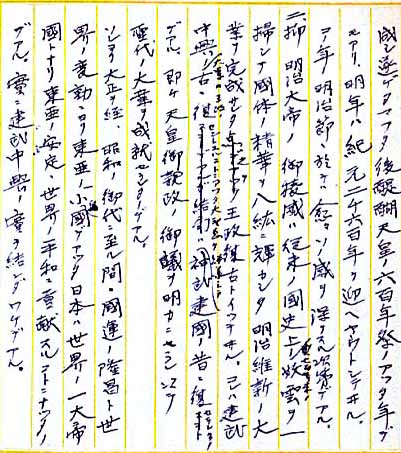 国シ遊ゲタマフタ後醍醐天皇ノ六百年祭ノアツタ年デ
モアリ、明年ハ紀元二千六百年ヲ迎ヘヤウトシテヰル。
ア年ノ明治節ニ於テハ愈々ソノ感ヲ深ウスル次第デアル。
二、抑明治大帝ノ御稜威ハ従来ノ国史上ノ妖雲ヲ一
掃シテ国体ノ精華ヲ八紘ニ輝カシタ明治維新ノ大
業ヲ完成セタ 王政復古トイフテヰル。已ハ建武
中興ノ古ニ復 結局ハ神武建国ノ昔ニ復
デアル。即ケ天皇御親政ノ御議ヲ明カニセラレテ
聖代ノ大華ヲ成就セシタノデアル。
ソシテ大正ヲ経、昭和ノ御代ニ至ル間、国運ノ隆昌ト世
界ノ変動ニヨリ東亜ノ小国デアツタ日本ハ世界ノ一大帝
国トナリ東亜ノ安定、世界ノ平和ニ貢献スルコトニナツタノ
デアル。実ニ建武中興ノ実ヲ結ンダワケデアル。